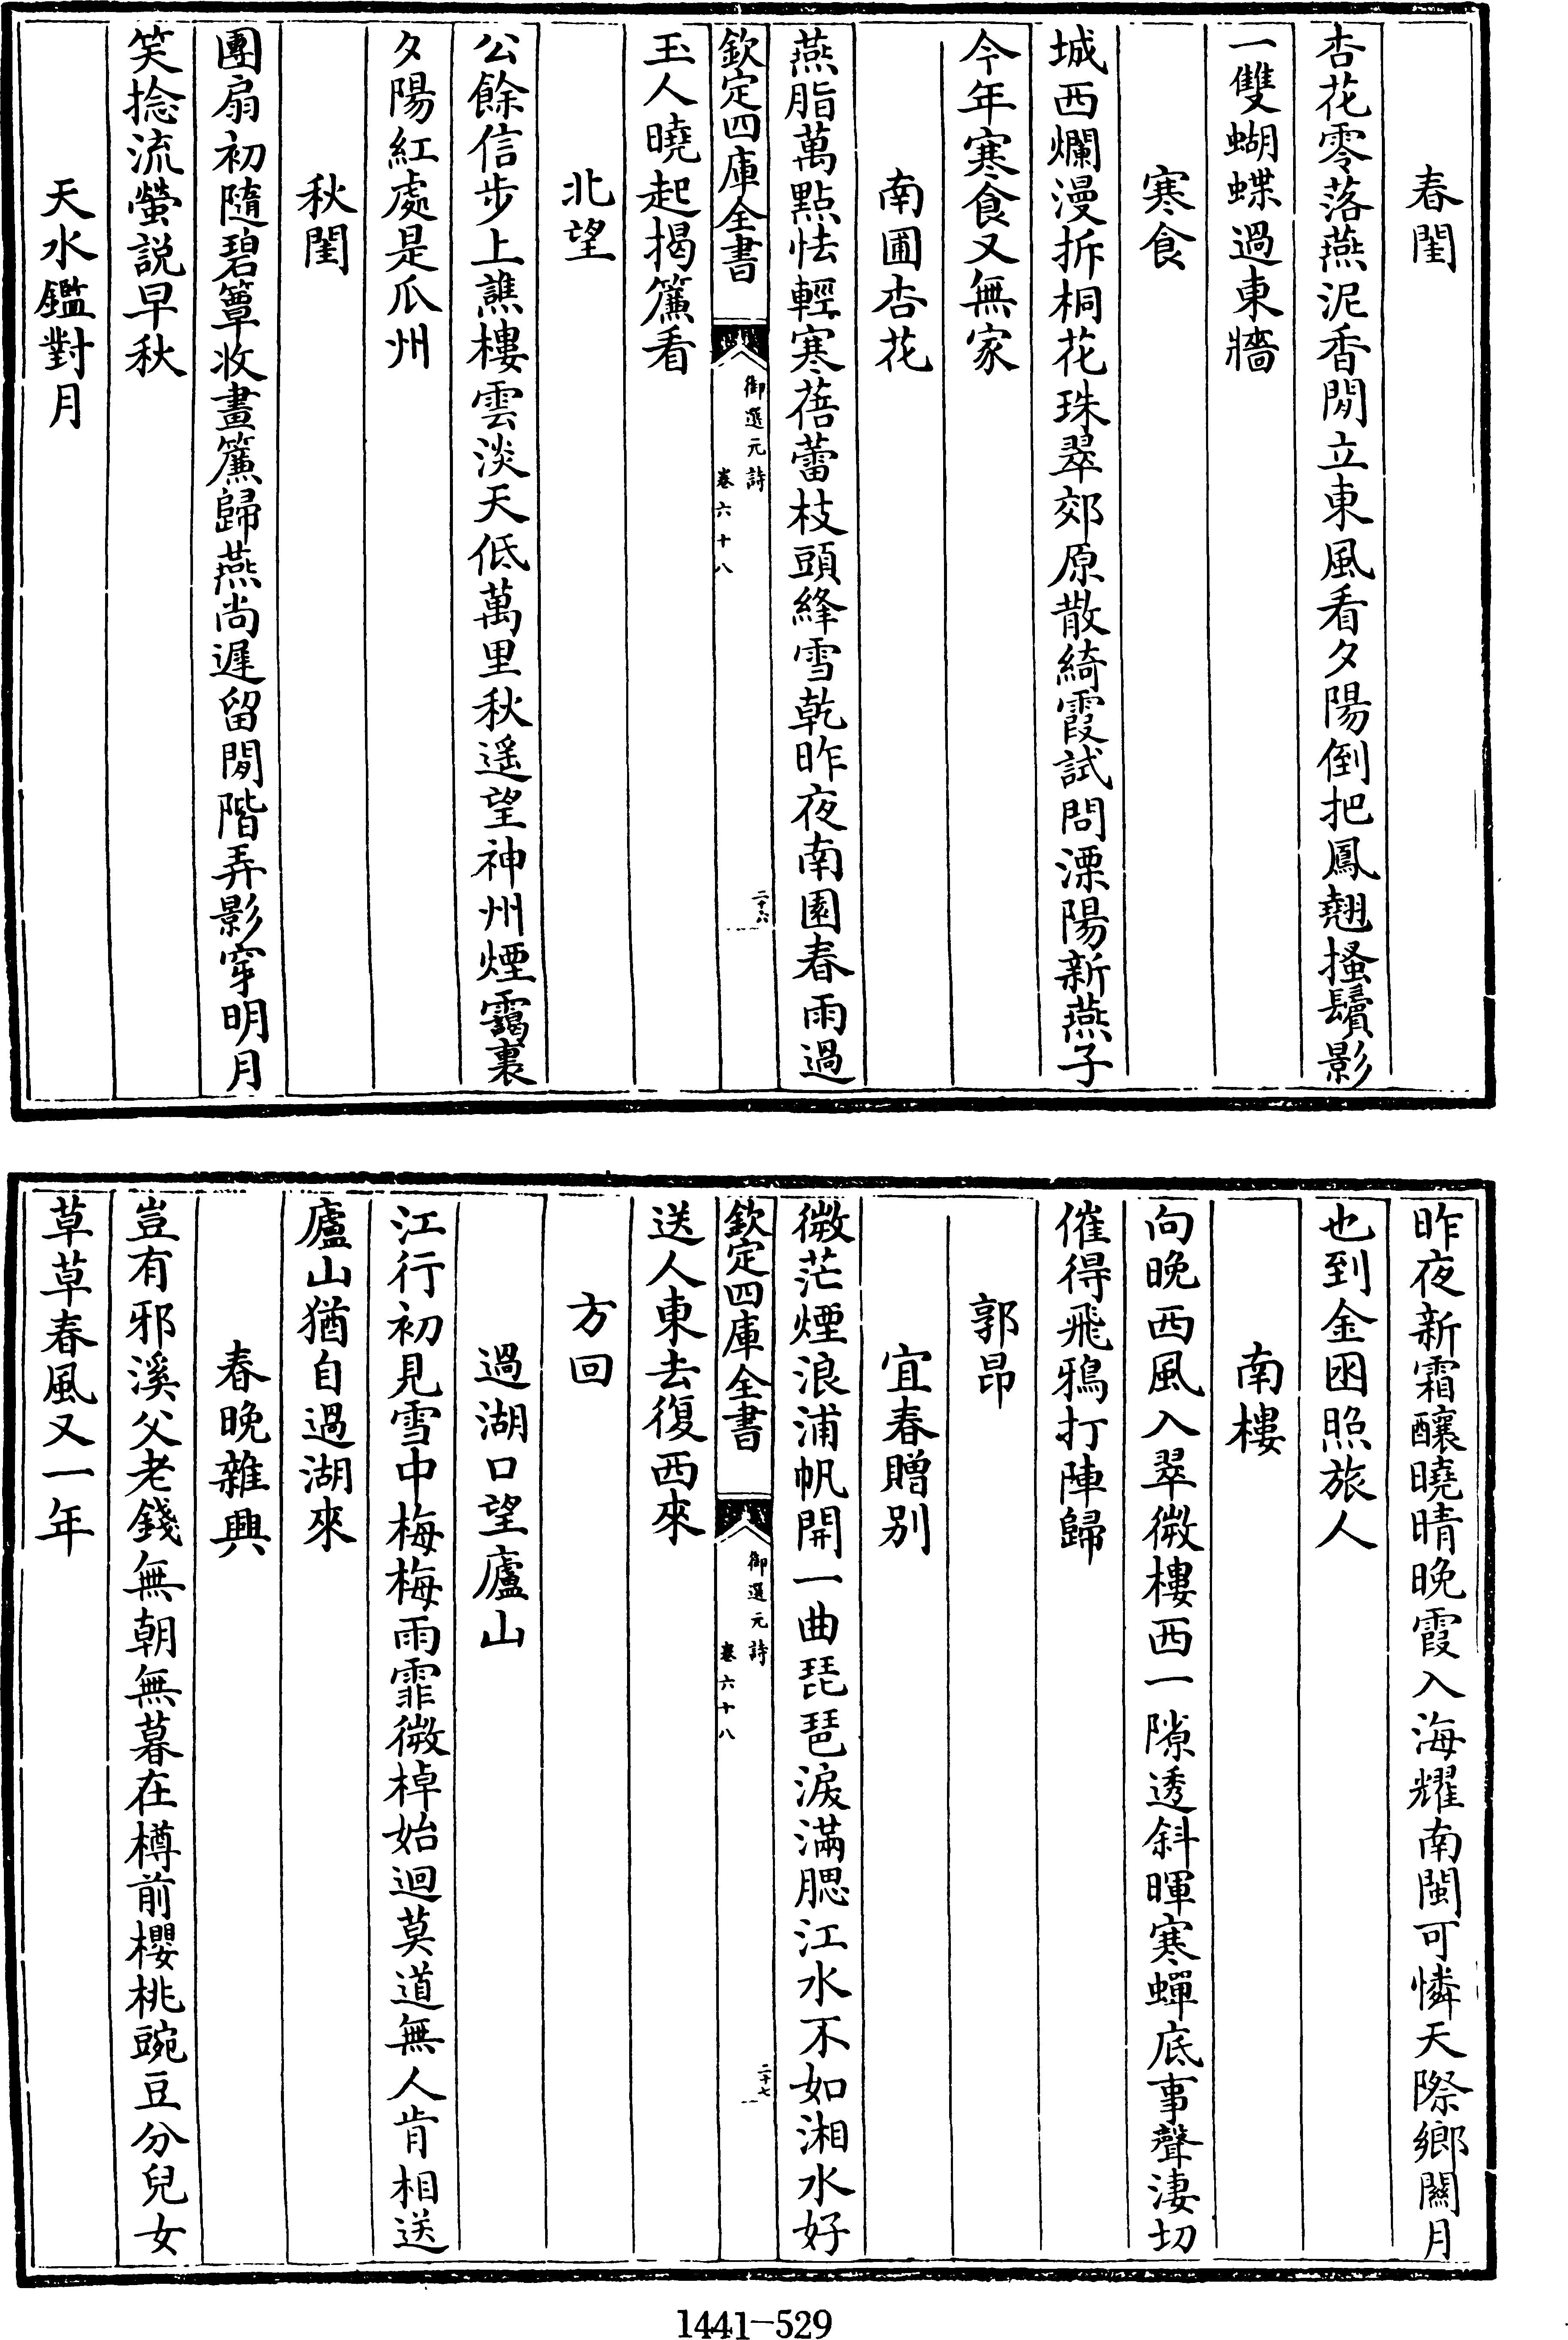 春閨
杏花零落燕泥香閒立東風看夕陽倒把鳳翹搔鬢影
一雙蝴蝶過東牆
寒食
城西爛漫拆桐花珠翠郊原散綺霞試問溧陽新燕子
今年寒食又無家
南圃杏花
燕脂萬點怯輕寒蓓蕾枝頭絳雪乾昨夜南園春雨過
欽定四庫全書
御選元詩
卷六十八
二十六
玉人曉起揭簾看
北望
公餘信步上譙樓雲淡天低萬里秋遥望神州煙靄裏
夕陽紅處是瓜州
秋閨
團扇初隨碧簟收畫簾歸燕尚遲留閒階弄影穿明月
笑捻流螢説早秋
天水鑑對月
昨夜新霜釀曉晴晚霞入海耀南閩可憐天際鄉關月
也到金囦照旅人
南樓
向晚西風入翠微樓西一隙透斜暉寒蟬底事聲淒切
催得飛鴉打陣歸
郭昂
宜春贈别
微茫煙浪浦帆開一曲琵琶淚滿腮江水不如湘水好
欽定四庫全書
御選元詩
卷六十八
二十七
送人東去復西來
方回
過湖口望廬山
江行初見雪中梅梅雨霏微棹始迴莫道無人肯相送
廬山猶自過湖來
春晚雜興
豈有邪溪父老錢無朝無暮在樽前櫻桃豌豆分兒女
草草春風又一年
1441-529